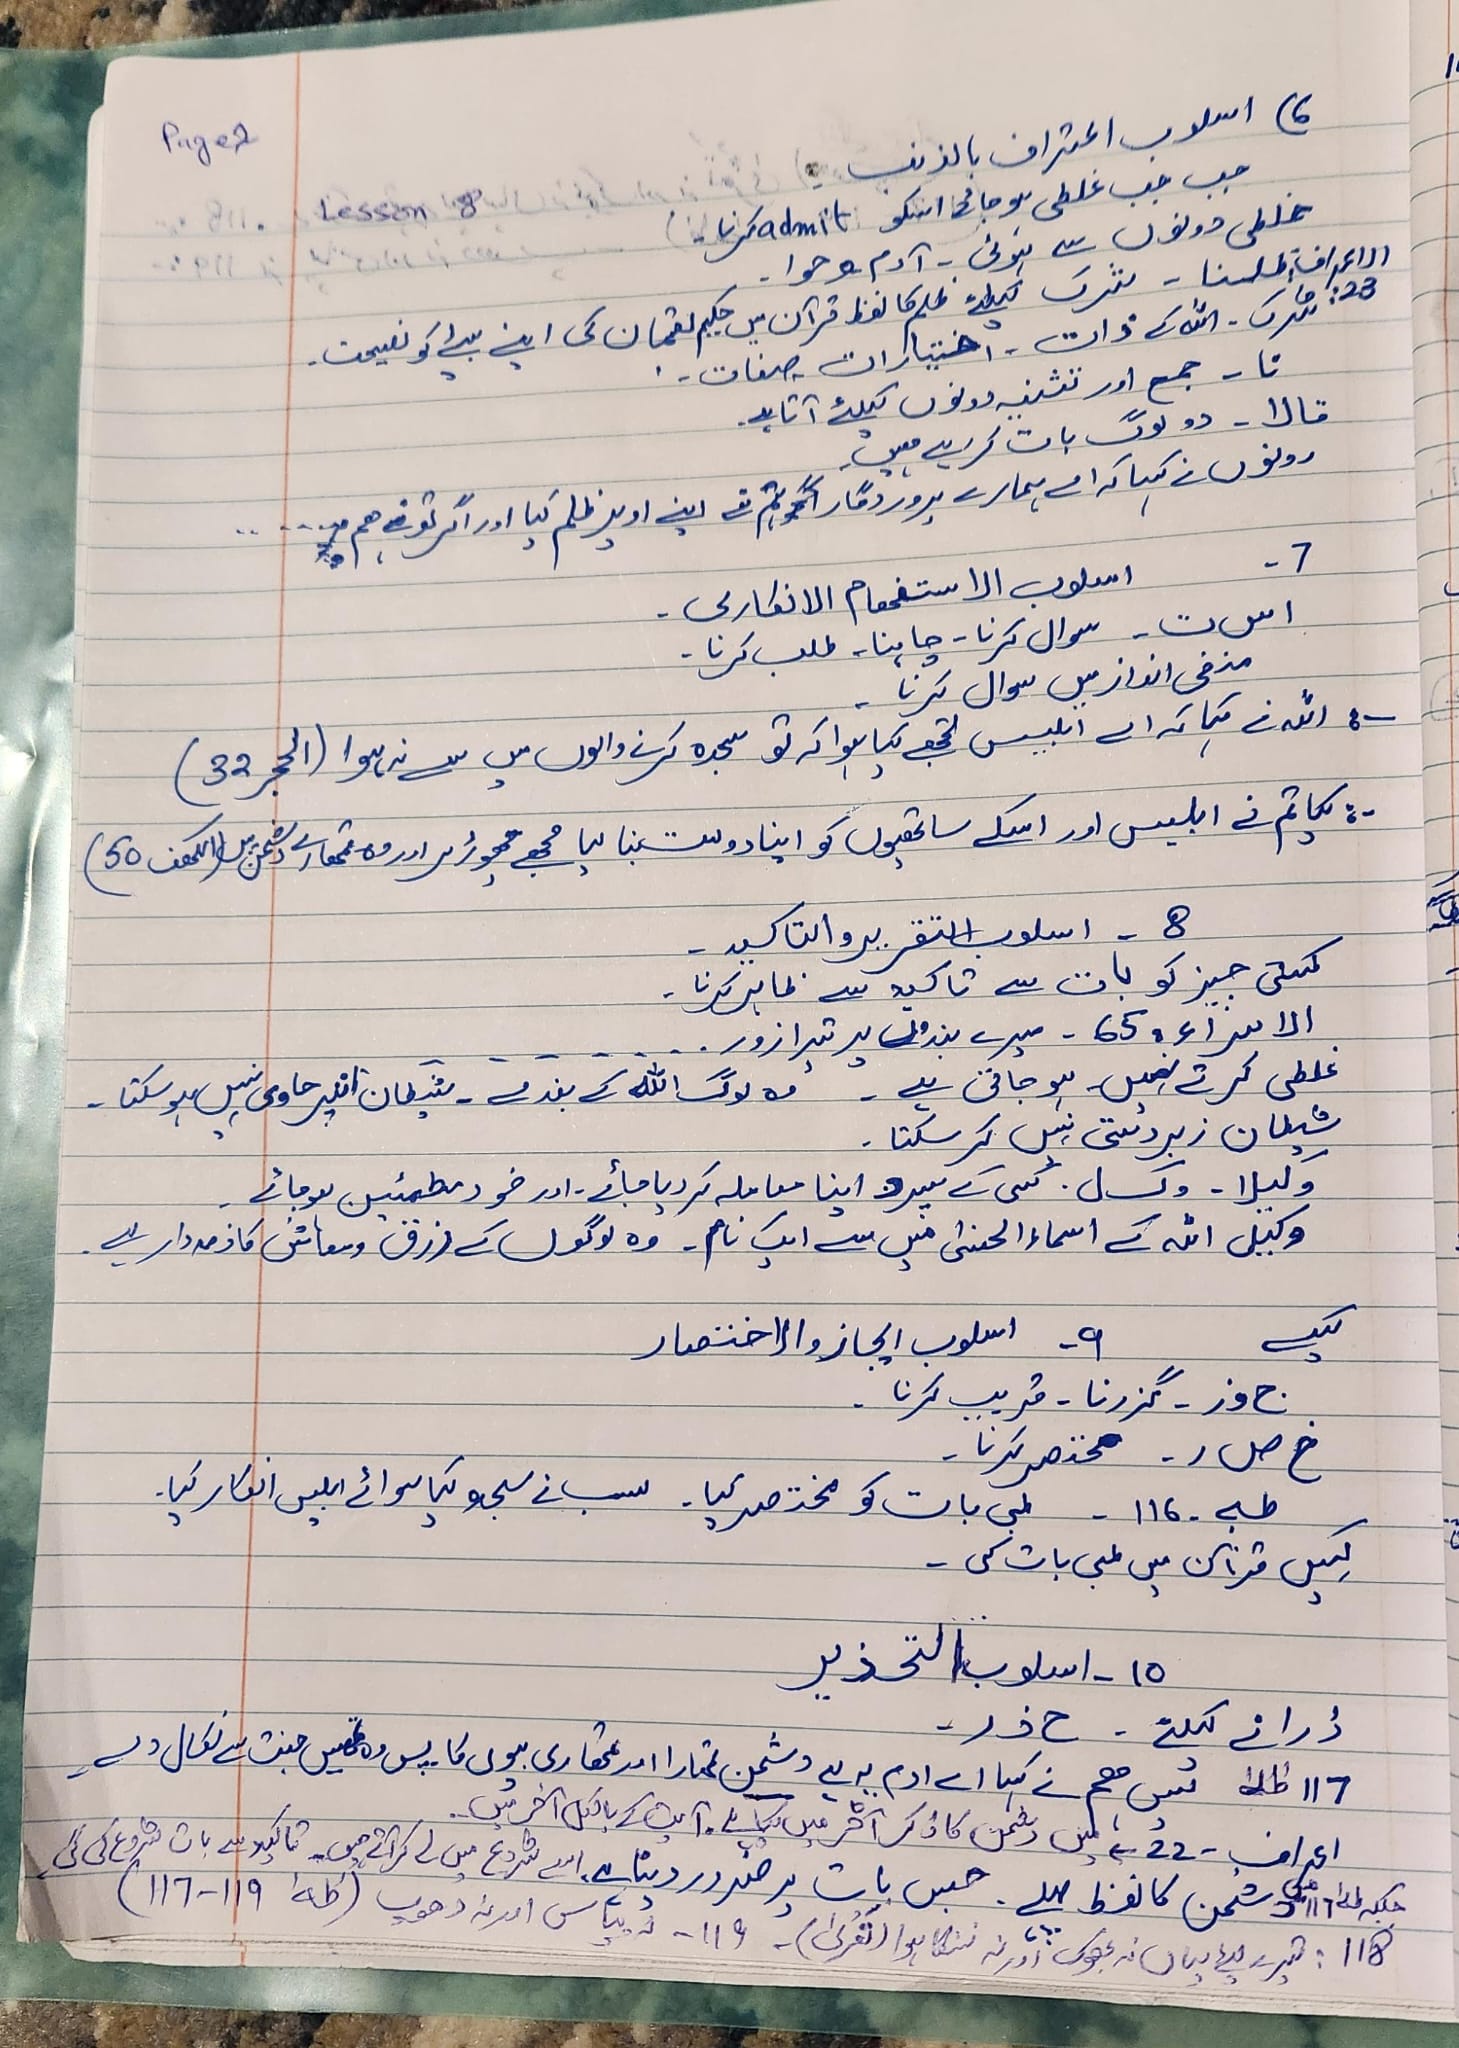 Page 2
Lesson 8
6) اسلوب اعتراف بالذنب -
جب جب غلطی ہو جائے اسکو admit کرنا -
غلطی دونوں سے ہوئی - آدم و حوا -
الاعراف :23 ظلمنا - شرک کیلئے ظلم کا لفظ قرآن میں حکیم لقمان کی اپنے بیٹے کو نصیحت -
شرک - اللہ کے ذات - اختیارات - صفات -
نا - جمع اور تثنیہ دونوں کیلئے آتا ہے -
قالا - دو لوگ بات کر رہے ہیں -
دونوں نے کہا کہ اے ہمارے پروردگار ہم نے اپنے اوپر ظلم کیا اور اگر تو نے ہم پر .....
7 - اسلوب الاستفھام الانکاری -
اس ت - سوال کرنا - چاہنا - طلب کرنا -
منفی انداز میں سوال کرنا -
اللہ نے کہا کہ اے ابلیس تجھے کیا ہوا کہ تو سجدہ کرنے والوں میں سے نہ ہوا (الحجر 32)
کیا تم نے ابلیس اور اسکے ساتھیوں کو اپنا دوست بنا لیا مجھے چھوڑ کر اور وہ تمھارے دشمن ہیں (الکھف 50)
8 - اسلوب التقریر و التاکید -
کسی چیز کو بات سے تاکید سے ظاہر کرنا -
الاسراء 65 - میرے بندوں پر تیرا زور . - - - - - -
غلطی کرتے نہیں - ہو جاتی ہے - وہ لوگ اللہ کے بندے - شیطان ان پر حاوی نہیں ہو سکتا -
شیطان زبردستی نہیں کر سکتا -
وکیلا - وک ل . کسی کے سپرد اپنا معاملہ کر دیا جائے - اور خود مطمئین ہو جائے -
وکیل اللہ کے اسماء الحسنیٰ میں سے ایک نام - وہ لوگوں کے رزق و معاش کا ذمہ دار ہے -
9 - اسلوب ایجاز و الاختصار
ج و ز - گزرنا - قریب کرنا -
خ ص ر - مختصر کرنا -
طہ - 116 - لمبی بات کو مختصر کیا - سب نے سجدہ کیا سوائے ابلیس انکار کیا -
کہیں قرآن میں لمبی بات کی -
10 - اسلوب التحذیر
ڈرانے کیلئے - ح ذ ر -
117 طہٰ پس ھم نے کہا اے ادم یہ ہے دشمن تمھارا اور تمھاری بیوی کا پس وہ تمھیں جنت سے نکال دے -
اعراف - 22 میں دشمن کا ذکر آخر میں کیا ہے . آیت کے بالکل آخر میں -
جبکہ طہٰ 117 میں دشمن کا لفظ پہلے . جس بات پر ضرور دیتا ہے . اسے شروع میں لے کر آتے ہیں - تاکید سے بات شروع کی گئی
118 : تیرے لیے یہاں نہ بھوک اور نہ ننگا ہوا (تَعْرٰی) - 119 - نہ پیاس اور نہ دھوپ (طہٰ 119-117)